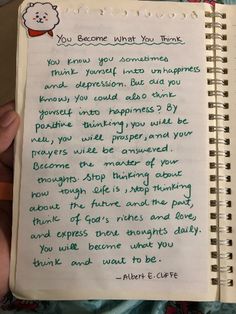 You Become What You Think
You know you sometimes
think yourself into unhappiness
and depression. But did you
know, you could also think
yourself into happiness? By
positive thinking, you will be
well, you will prosper, and your
prayers will be answered.
Become the master of your
thoughts. Stop thinking about
how tough life is, stop thinking
about the future and the past,
think of God's riches and love,
and express these thoughts daily.
You will become what you
think and want to be.
— Albert E. Cliffe